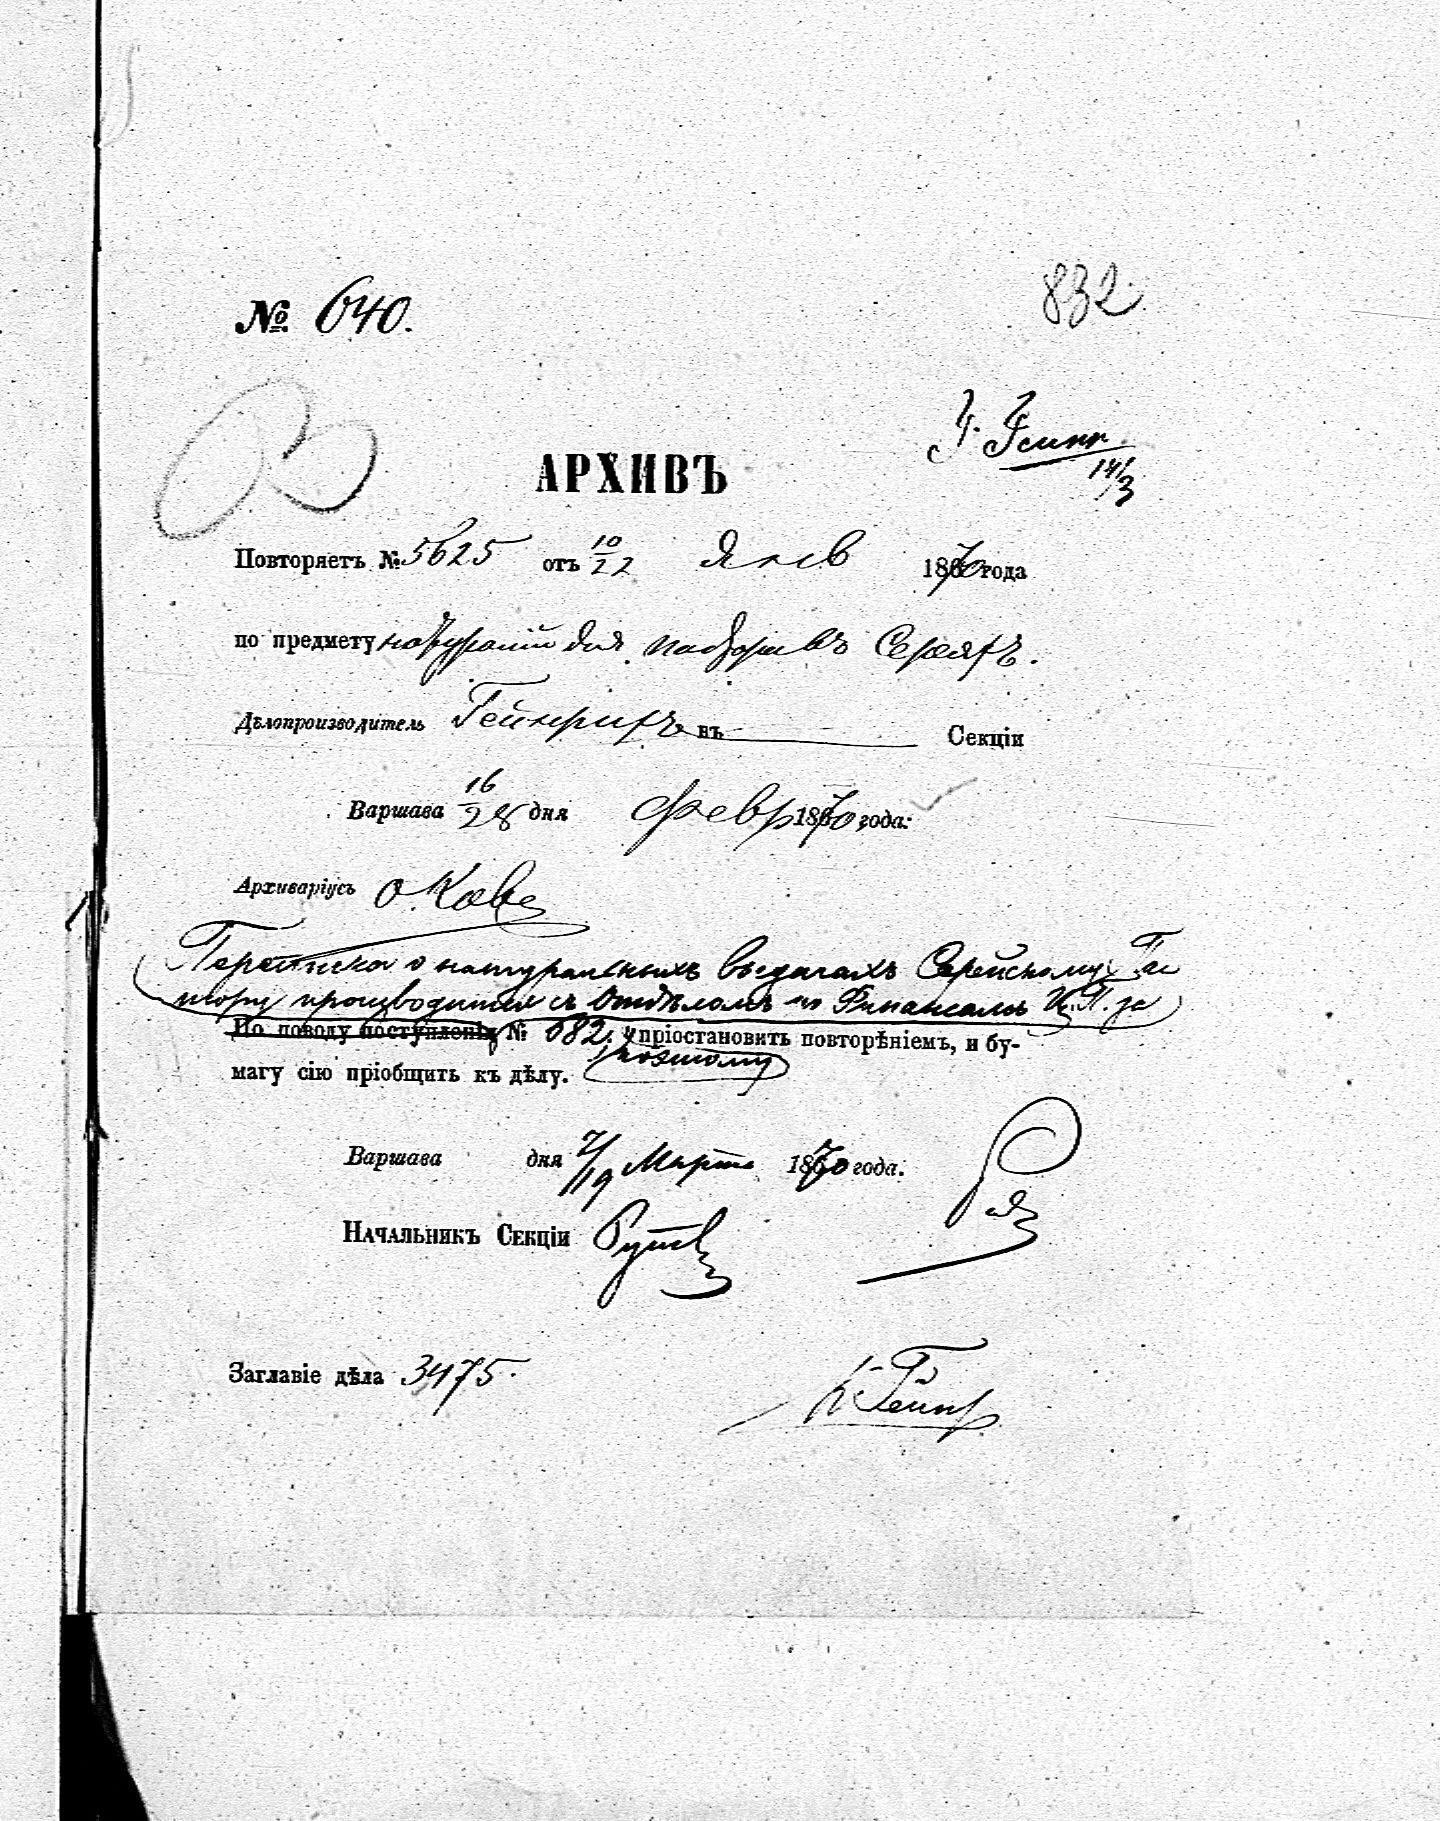 832
№ 640.
Г. Гейнр
14/3
АРХИВЪ
Повторяетъ № 5625 отъ 10/22 Янв 1870 года
по предмету натурали для пастора въ Сереяхъ.
Дѣлопроизводитель Гейнрихъ въ Секціи
Варшава 16/28 дня февр 1870 года.
Архиваріусъ
Переписка о натуральныхъ выдачахъ Серейскому Пас
тору производится съ Отдѣломъ по Финансамъ Ц. П. за
По поводу поступленія № 682. и пріостановить повторѣніемъ, и бу-
поэтому
магу сію пріобщить къ дѣлу.
Варшава дня 7/19 Марта 1870 года.
Начальникъ Секціи
Заглавіе дѣла 3475.
К. Гейнр